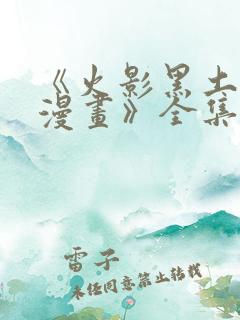 《火影黑土
漫畫》全集
雷子
未经同意禁止转载